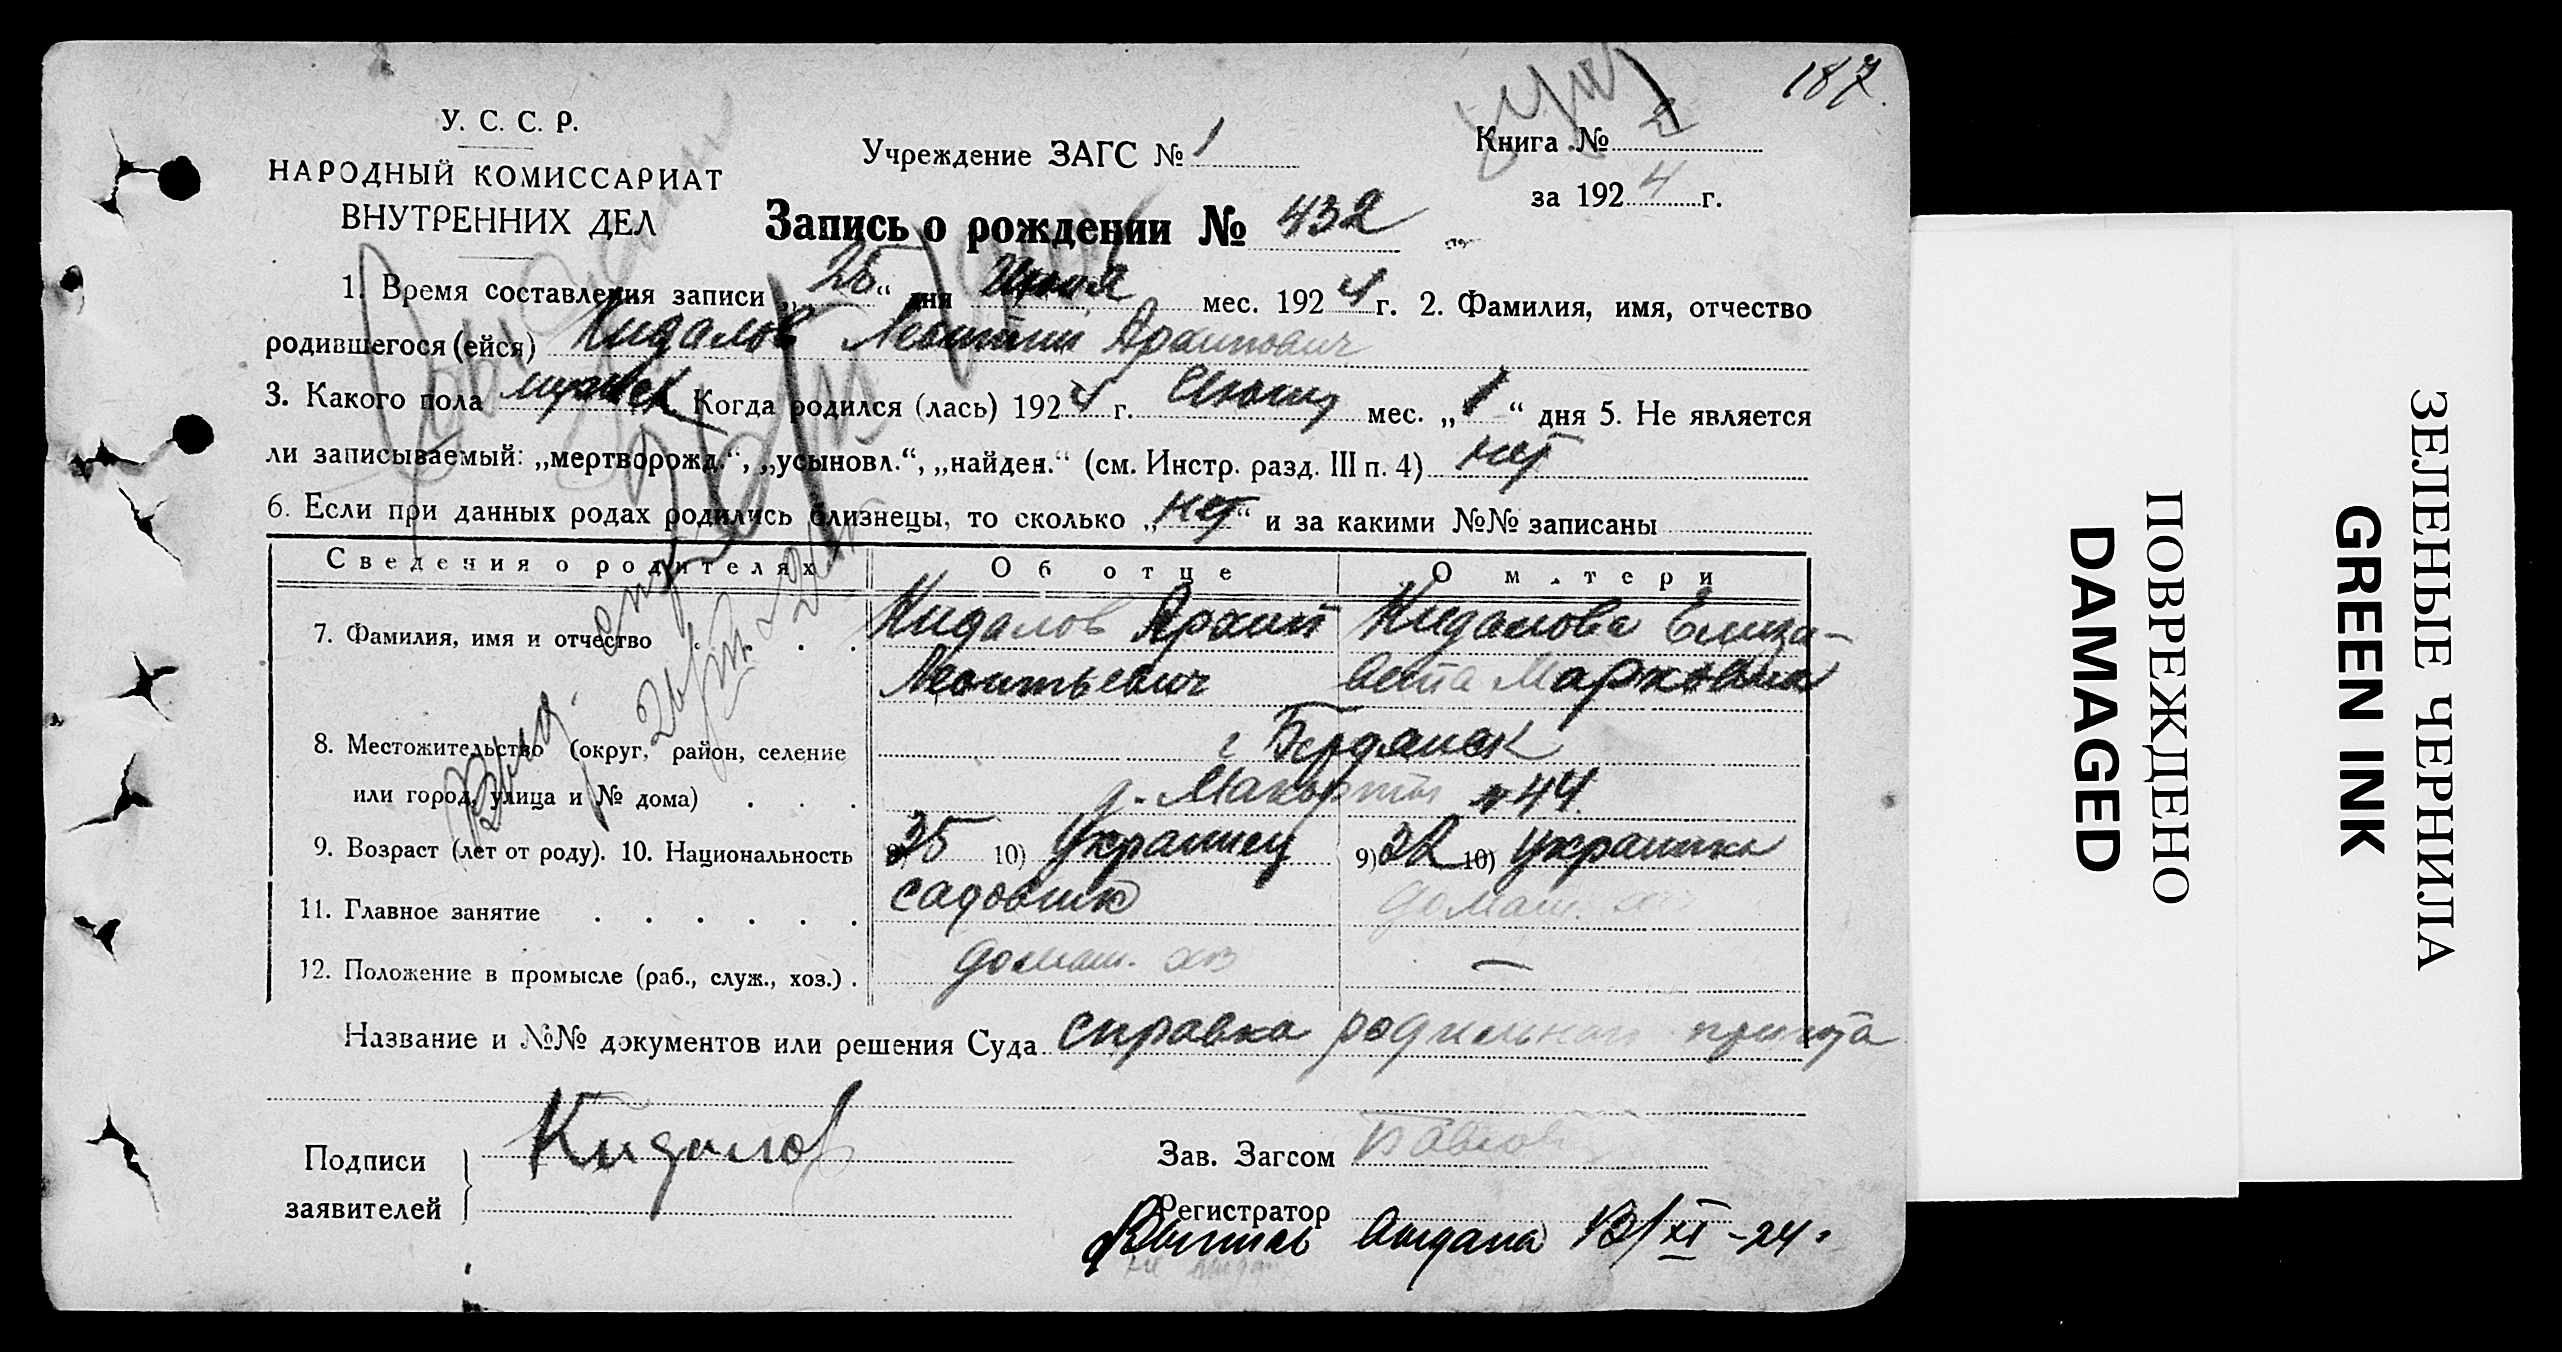 187.
У. С. С. Р.
НАРОДНЫЙ КОМИССАРИАТ
ВНУТРЕННИХ ДЕЛ
Учреждение ЗАГС № 1
Книга № 2
за 1924 г.
Запись о рождении № 432
1. Время составления записи „25“ дня Июня мес. 1924 г. 2. Фамилия, имя, отчество
родившегося (ейся) Кидалов Леонтий Архипович
3. Какого пола мужск Когда родился (лась) 1924 г. мес. „1“ дня 5. Не является
ли записываемый: „мертворожд.“, „усыновл.“, „найден.“ (см. Инстр. разд. III п. 4) нет
6. Если при данных родах родились близнецы, то сколько „нет“ и за какими №№ записаны
Сведения о родителях Об отце О матери
7. Фамилия, имя и отчество . . . . Кидалов Архип Кидалова Елиза-
Леонтьевич вета Марковна
8. Местожительство (округ, район, селение г Бердянск
или город, улица и № дома) . . . № 44.
9. Возраст (лет от роду). 10. Национальность 9) 35 10) Украинец 9) 32 10) украинка
11. Главное занятие . . . . . . садовник домаш. хоз
12. Положение в промысле (раб., служ., хоз.) . домаш. хоз —
Название и №№ документов или решения Суда справка родильного приюта
Подписи
заявителей
Кидалов
Зав. Загсом
Регистратор
Выпись выдана 13/XI-24.
ПОВРЕЖДЕНО
DAMAGED
ЗЕЛЕНЫЕ ЧЕРНИЛА
GREEN INK